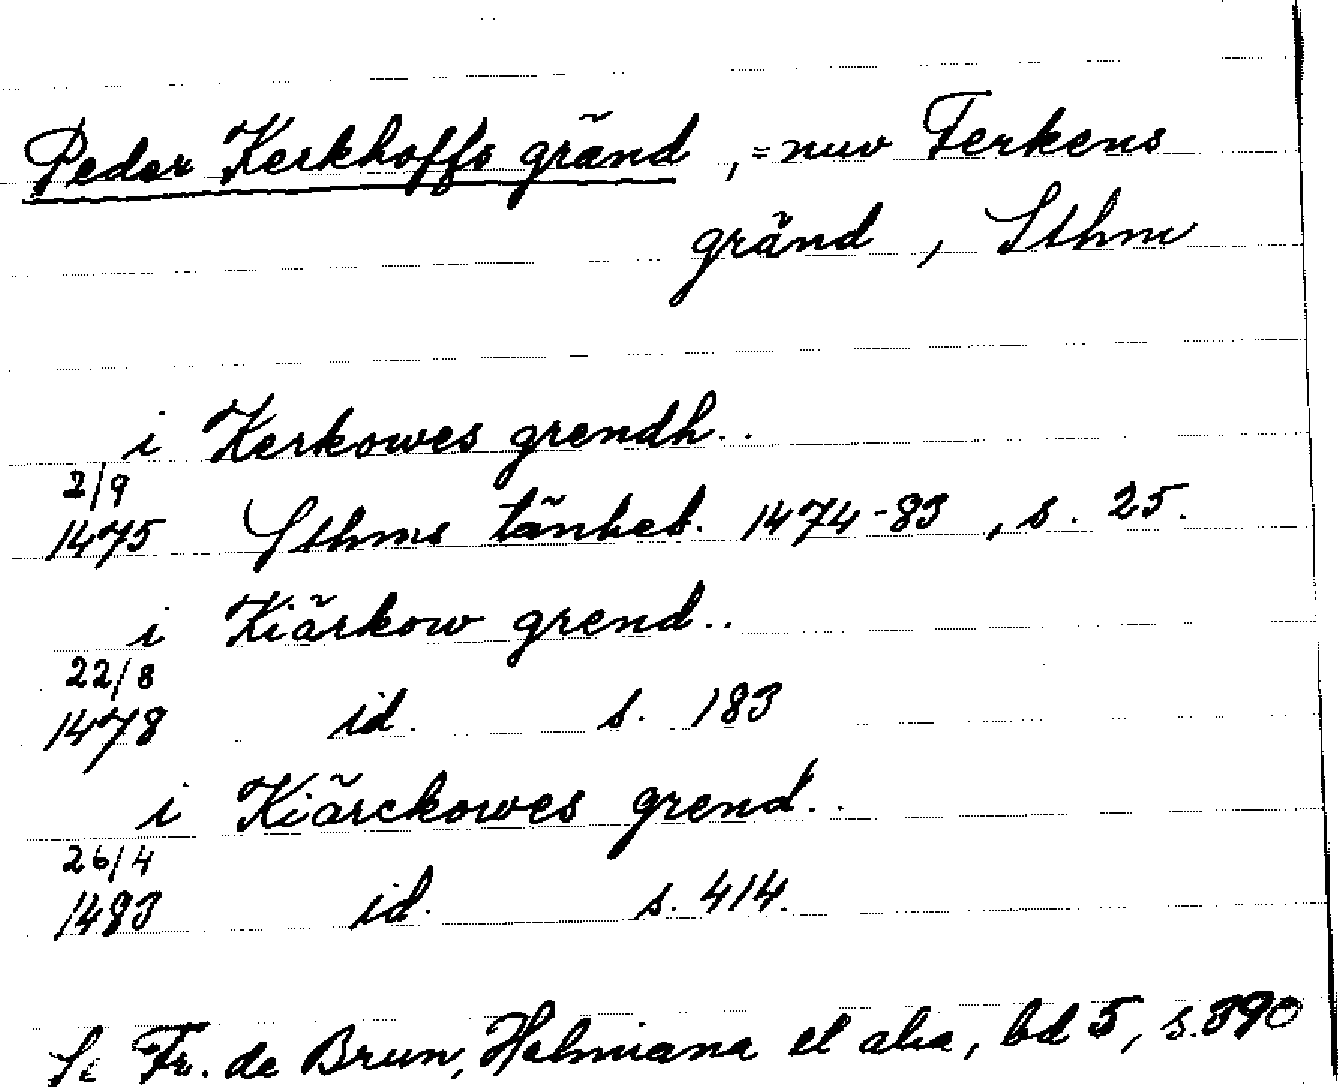 Peder Kerkhoffs gränd, = nuv Ferkens
gränd, Sthm
i Kerkowes grendh..
2/9
1475 Sthms tänkeb. 1474-83, s. 25.
i Kiärkow grend..
22/8
1478 id. s. 183
i Kiärckowes grend..
26/4
1483 id. s. 414.
Se Fr. de Brun, Holmiana et alia, bd 5, s. 390